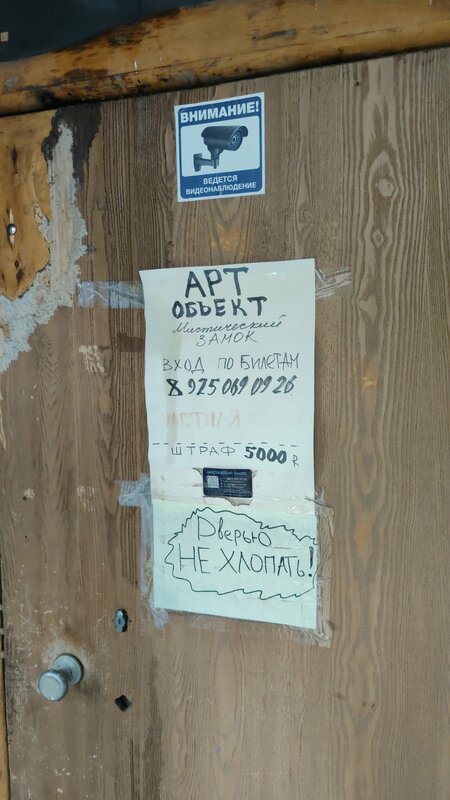 ВНИМАНИЕ!
ВЕДЕТСЯ
ВИДЕОНАБЛЮДЕНИЕ
АРТ
ОБЪЕКТ
Мистический
ЗАМОК
ВХОД ПО БИЛЕТАМ
8 925 069 09 26
ШТРАФ 5000 R
Дверью
НЕ ХЛОПАТЬ!